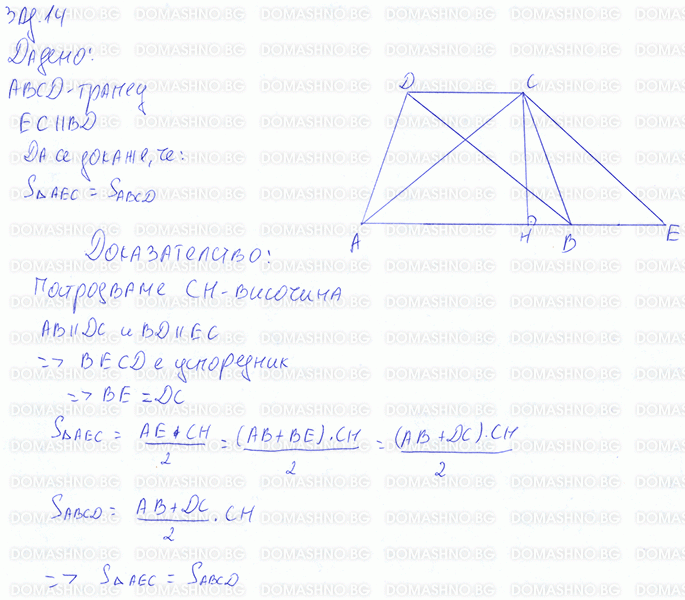 Зад. 14
Дадено:
ABCD - трапец
EC || BD
Да се докаже, че:
S△AEC = SABCD
D C
A H B E
Доказателство:
Построяваме CH - височина
AB || DC и BD || EC
=> BECD е успоредник
=> BE = DC
S△AEC = AE . CH / 2 = (AB + BE) . CH / 2 = (AB + DC) . CH / 2
SABCD = AB + DC / 2 . CH
=> S△AEC = SABCD
DOMASHNO.BG